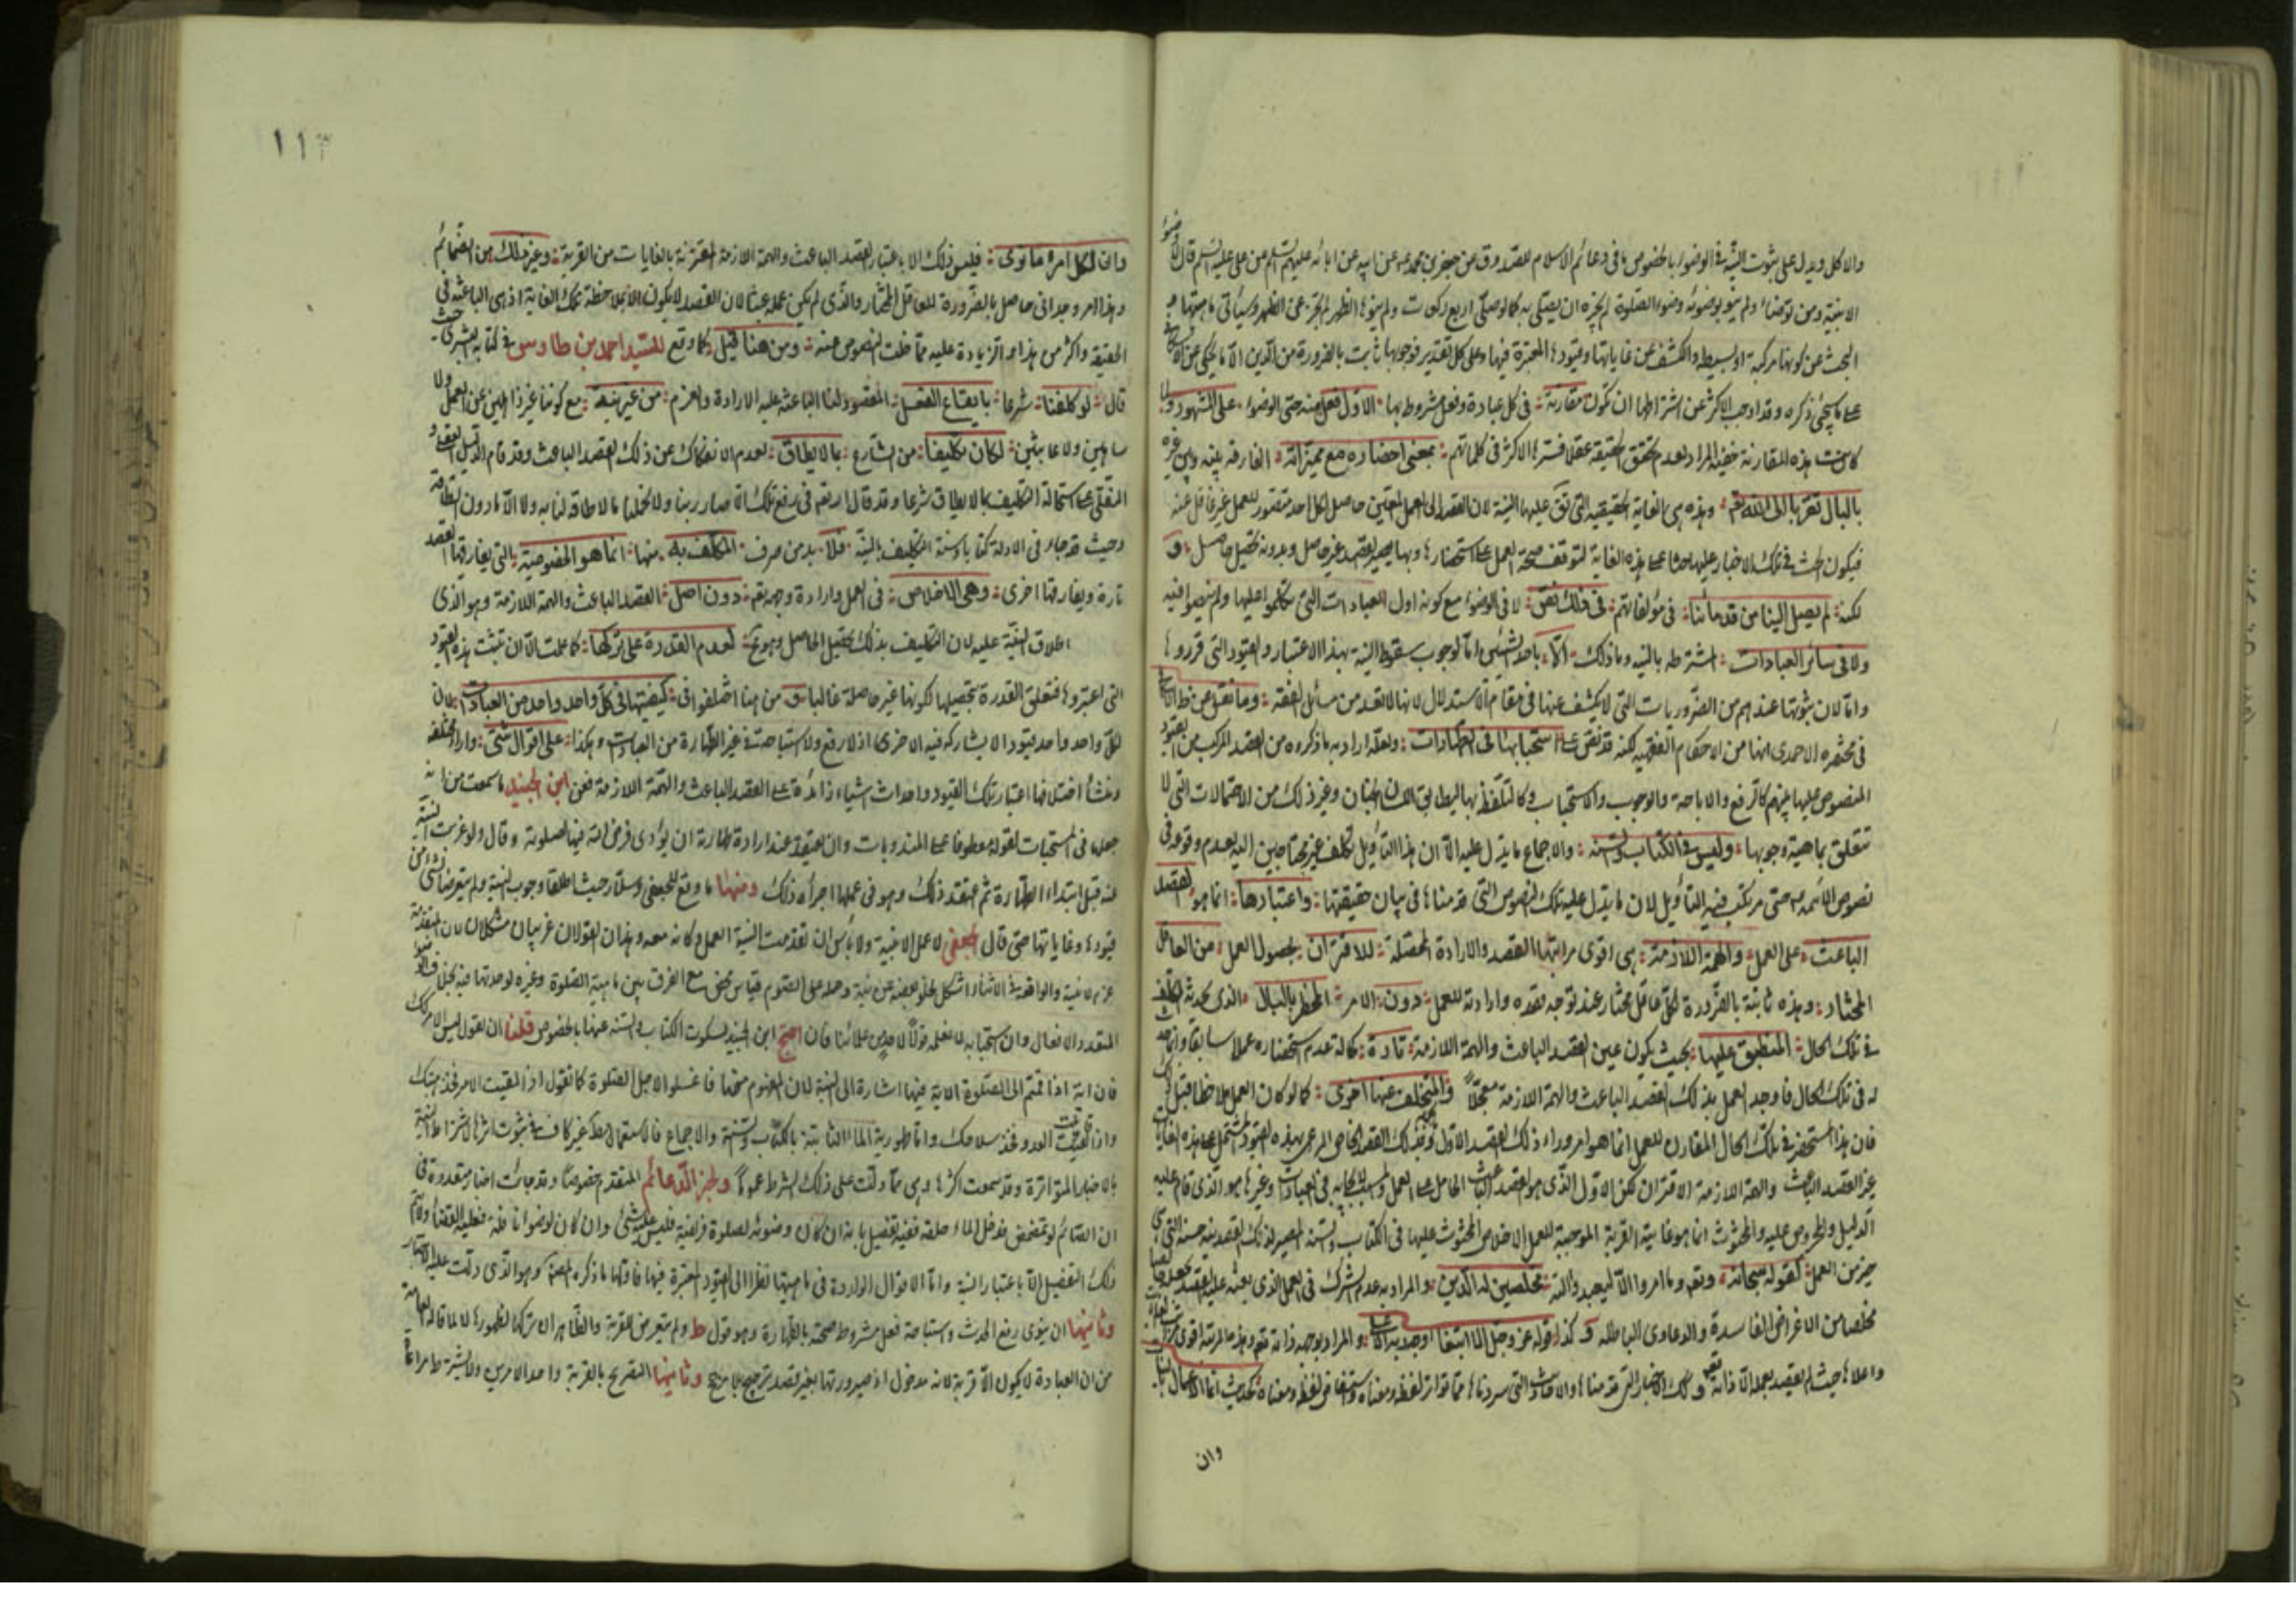 والاكل ويدل على ثبوت النية في الوضوء بالخصوص ما في دعائم الاسلام للصدوق عن جعفر بن محمد عن ابيه عن ابائه عليهم السلام عن علي عليه السلم قال لا وضوء
الا بنية ومن توضأ ولم ينو بوضوئه وضوء الصلوة لم يجزه ان يصلي به كما لو صلى اربع ركعات ولم ينو بها الظهر لم يجز عن الظهر وسيأتي ما
البحث عن كونها مركبة او بسيطة والكشف عن غاياتها وقيودها المعتبرة فيها وعلى كل تقدير فوجوبها ثابت بالضرورة من الدين الا ما يحكى عن
على ما يجيئ ذكره وقد اوجب الاكثر عن اشتراطها ان تكون مقارنة في كل عبادة وفعل مشروط بها الاول فعل منه حتى الوضوء على المشهور ولما
كانت هذه المقارنة خفية المراد لعدم تحقق الحقيقة عقلا فسرها الاكثر في كلماتهم بمعنى احضاره مع مميزاته الفارقة بينه وبين غيره
بالبال تقربا الى الله تع وهذه هي الغاية الحقيقية التي تقع عليها النية لان القصد الى العمل المعين حاصل لكل احد متصور للعمل غير غافل عنه
فيكون الحث في تلك الاخبار عليها حثا على هذه الغاية لتوقف صحة العمل على استحضارها وبها يصير القصد غير حاصل وبدونه تحصيل حاصل و
لكنه لم يصل الينا من قدمائنا في مؤلفاتهم في ذلك نص لا في الوضوء مع كونه اول العبادات التي تكلموا عليها ولم ينصوا فيه
ولا في سائر العبادات المشترطة بالنية وما ذلك الا باحد الشيئين اما لوجوب سقوط النية بهذا الاعتبار والقيود التي قرروها
واما لان ثبوتها عندهم من الضروريات التي لا يكشف عنها في مقام الاستدلال لانها لا تعد من مسائل الفقه وما نقل عن
في مختصره الاحمدي انها من الاحكام الفقهية لكنه قد نص على استحبابها في الطهارات ولعله اراد به ما ذكروه من القصد المركب من القيود
المنصوص عليها بينهم كالرفع والاباحة والوجوب والاستحباب وكالتلفظ بها ليطابق اللسان الجنان وغير ذلك من الاحتمالات التي لا
تتعلق بماهية وجوبها وليس في الكتاب والسنة والاجماع ما يدل عليه الا ان هذا التأويل تكلف غير محتاجين اليه لعدم وقوعه في
نصوص الائمة حتى مرتكب فيه التأويل لان ما يدل عليه تلك النصوص التي قدمناها في بيان حقيقتها واعتبارها انما هو القصد
الباعث على العمل والهمة اللازمة هي اقوى مراتبها القصد والارادة المحصلة للاقتران بحصول العمل من العاقل
المختار وهذه ثابتة بالضرورة لكل عاقل مختار عند توجه قصده وارادته للعمل دون الامر المخطر بالبال الذي يحدثه المكلف
في تلك الحال المنطبق عليها بحيث يكون عين القصد الباعث والهمة اللازمة تارة كما له عدم استحضاره عملا سابقا
له في تلك الحال فاوجد العمل بذلك القصد الباعث والهمة اللازمة معجلا والمتخلف عنها اخرى كما لو كان العمل ملاحظا قبل
فان هذا المستحضر في تلك الحال المقارن للعمل انما هو امر وراء ذلك القصد الاول
غير القصد الباعث والهمة اللازمة الاقتران لكن الاول الذي هو القصد الباعث الحامل على العمل في العبادات وغيرها هو الذي قام عليه
الدليل والمحروص عليه والمحثوث انما هو غاية القربة الموجبة للعمل الاخلاص المحثوث عليها في الكتاب والسنة المصير لذلك القصد نية حسنة التي هي
خير من العمل كقوله سبحانه وتع وما امروا الا ليعبدوا الله مخلصين له الدين والمراد به عدم الشرك في العمل الذي بعثه عليه القصد
مخلصا من الاغراض الفاسدة والدعاوى الباطلة وكذا قوله عز وجل الا ابتغاء وجه ربه الاعلى والمراد بوجهه ذاته تع وهذه المرتبة اقوى
واعلاها حيث لم يقصد بعمله الا ذاته تع وتلك الاخبار التي قدمناها والاحاديث التي سردناها مما تواتر لفظه ومعناه واستفاض لفظه ومعناه كحديث انما الاعمال بالنيات
وان
١١٣
وان لكل امرء ما نوى فليس ذلك الا باعتبار القصد الباعث والهمة اللازمة المقترنة بالغايات من القربة وغير ذلك من الضمائم
وهذا امر وجداني حاصل بالضرورة للعاقل المختار والذي لم يكن عمله عبثا لان القصد لا يكون الا بملاحظة تلك الغاية اذ هي الباعثة في
الحقيقة واكثر من هذا امر زيادة عليه مما خلت النصوص عنه ومن هنا قيل كما وقع للسيد احمد بن طاوس في كتابه البشرى حيث
قال لو كلفنا شرعا بايقاع الفعل المقصود لنا الباعث عليه الارادة والعزم من غير نية مع كوننا غير ذاهلين عن العمل ولا
ساهين ولا عابثين لكان تكليفا من الشارع بما لا يطاق لعدم الانفكاك عن ذلك القصد الباعث وقد قام الدليل العقلي و
النقلي على استحالة التكليف بما لا يطاق شرعا وقد قال تع في رفع تلك الاصار ربنا ولا تحملنا ما لا طاقة لنا به ولا الا ما دون الطاقة
وحيث قد جاء في الادلة كتابا وسنة التكليف بالنية فلا بد من صرف المكلف به منها انما هو الخصوصية التي يفارقها القصد
تارة ويقارقها اخرى وهي الاخلاص في العمل وارادة وجهه تع دون اصل القصد الباعث والهمة اللازمة وهو الذي
اطلاق النية عليه لان التكليف بذلك تحصيل الحاصل وهو مح لعدم القدرة على تركها كما علمت الا ان تثبت هذه القيود
التي اعتبروها فتعلق القدرة بتحصيلها لكونها غير حاصلة غالبا ومن هنا اختلفوا في كيفيتها في كل واحد واحد من العبادات لان
لكل واحد واحد قيود الا يشاركه فيه الاخرى اذ لا رفع ولا استباحة في غير الطهارة من العبادات وهكذا على اقوال شتى واراء مختلفة
ومنشأ اختلافها اعتبار تلك القيود واحداث اشياء زائدة على القصد الباعث والهمة اللازمة فعن ابن الجنيد ما سمعت من انه
جعلها في المستحبات لقوله معطوفا على المندوبات وان يعتقد عند ارادة طهارته ان يؤدي فرض الله فيها لصلوته وقال ولو عزبت النية
عنه قبل ابتداء الطهارة ثم اعتقد ذلك وهو في عملها اجزأه ذلك ومنها ما وقع للجعفي وسلار حيث اطلقا وجوب النية ولم يتعرضا لشئ من
قيودها وغاياتها حتى قال الجعفي لا عمل الا بنية ولا بأس ان تقدمت النية العمل او كانت معه وهذان القولان غريبان مشكلان لان المتقدمة
عزم لا نية والواقعة في الاثناء اشكل لخلو بعضه عن نية وحمله على الصوم قياس محض مع الفرق بين ماهية الصلوة وغيره لوحدتها فيه بخلاف الوضوء
المتعدد الافعال وان استحبابه لا نعلمه قولا لاحد من علمائنا فان احتج ابن الجنيد بسكوت الكتاب والسنة عنها بالخصوص قلنا ان نقول ليس الامر كذلك
فان اية اذا قمتم الى الصلوة الاية فيها اشارة الى النية لان المفهوم منها فاغسلوا لاجل الصلوة كما تقول اذا لقيت الامير فخذ اهبتك
واذا لقيت العدو فخذ سلاحك واما طهورية الماء الثابتة بالكتاب والسنة والاجماع فالاستعمال غير كاف في ثبوت اثرها لاشتراط النية
بالاخبار المتواترة وقد سمعت اكثرها وهي مما دلت على ذلك الشرط عموما ولخبر الدعائم المتقدم خصوصا وقد جائت اخبار متعددة في
ان الصائم لو تمضمض فدخل الماء حلقه ففيه تفصيل بانه ان كان وضوئه لصلوة فريضة فليس عليه شئ وان كان لوضوء نافلة فعليه القضاء ولا يتم
ذلك التفصيل الا باعتبار النية واما الاقوال الواردة في ماهيتها نظرا الى القيود المعتبرة فيها فاولها ما ذكره المصنف وهو الذي دلت عليه الاخبار
وثانيها ان ينوي رفع الحدث واستباحة فعل مشروط صحته بالطهارة وهو قول ط ولم يتعرض للقربة والظاهر انه تركها لظهورها لا لما قاله العامة
من ان العبادة لا يكون الا قربة لانه مدخول اذ صيرورتها بغير قصد ترجيح بلا مرجح وثالثها التصريح بالقربة واحد الامرين ولا يشترط